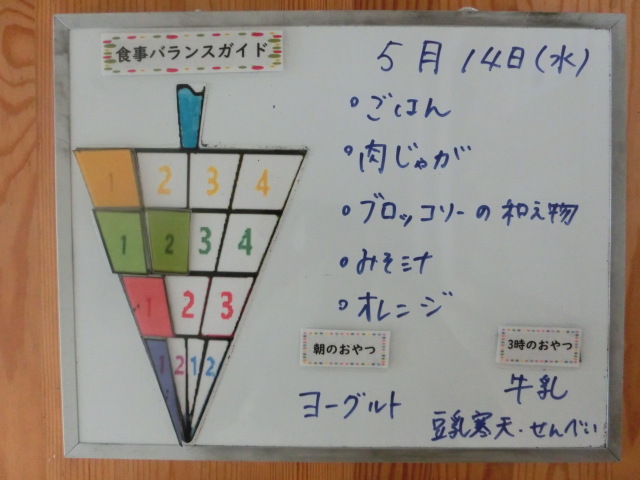 食事バランスガイド
5月14日(水)
1 2 3 4
1 2 3 4
1 2 3
1 2 1 2
・ごはん
・肉じゃが
・ブロッコリーの和え物
・みそ汁
・オレンジ
朝のおやつ
ヨーグルト
3時のおやつ
牛乳
豆乳寒天・せんべい